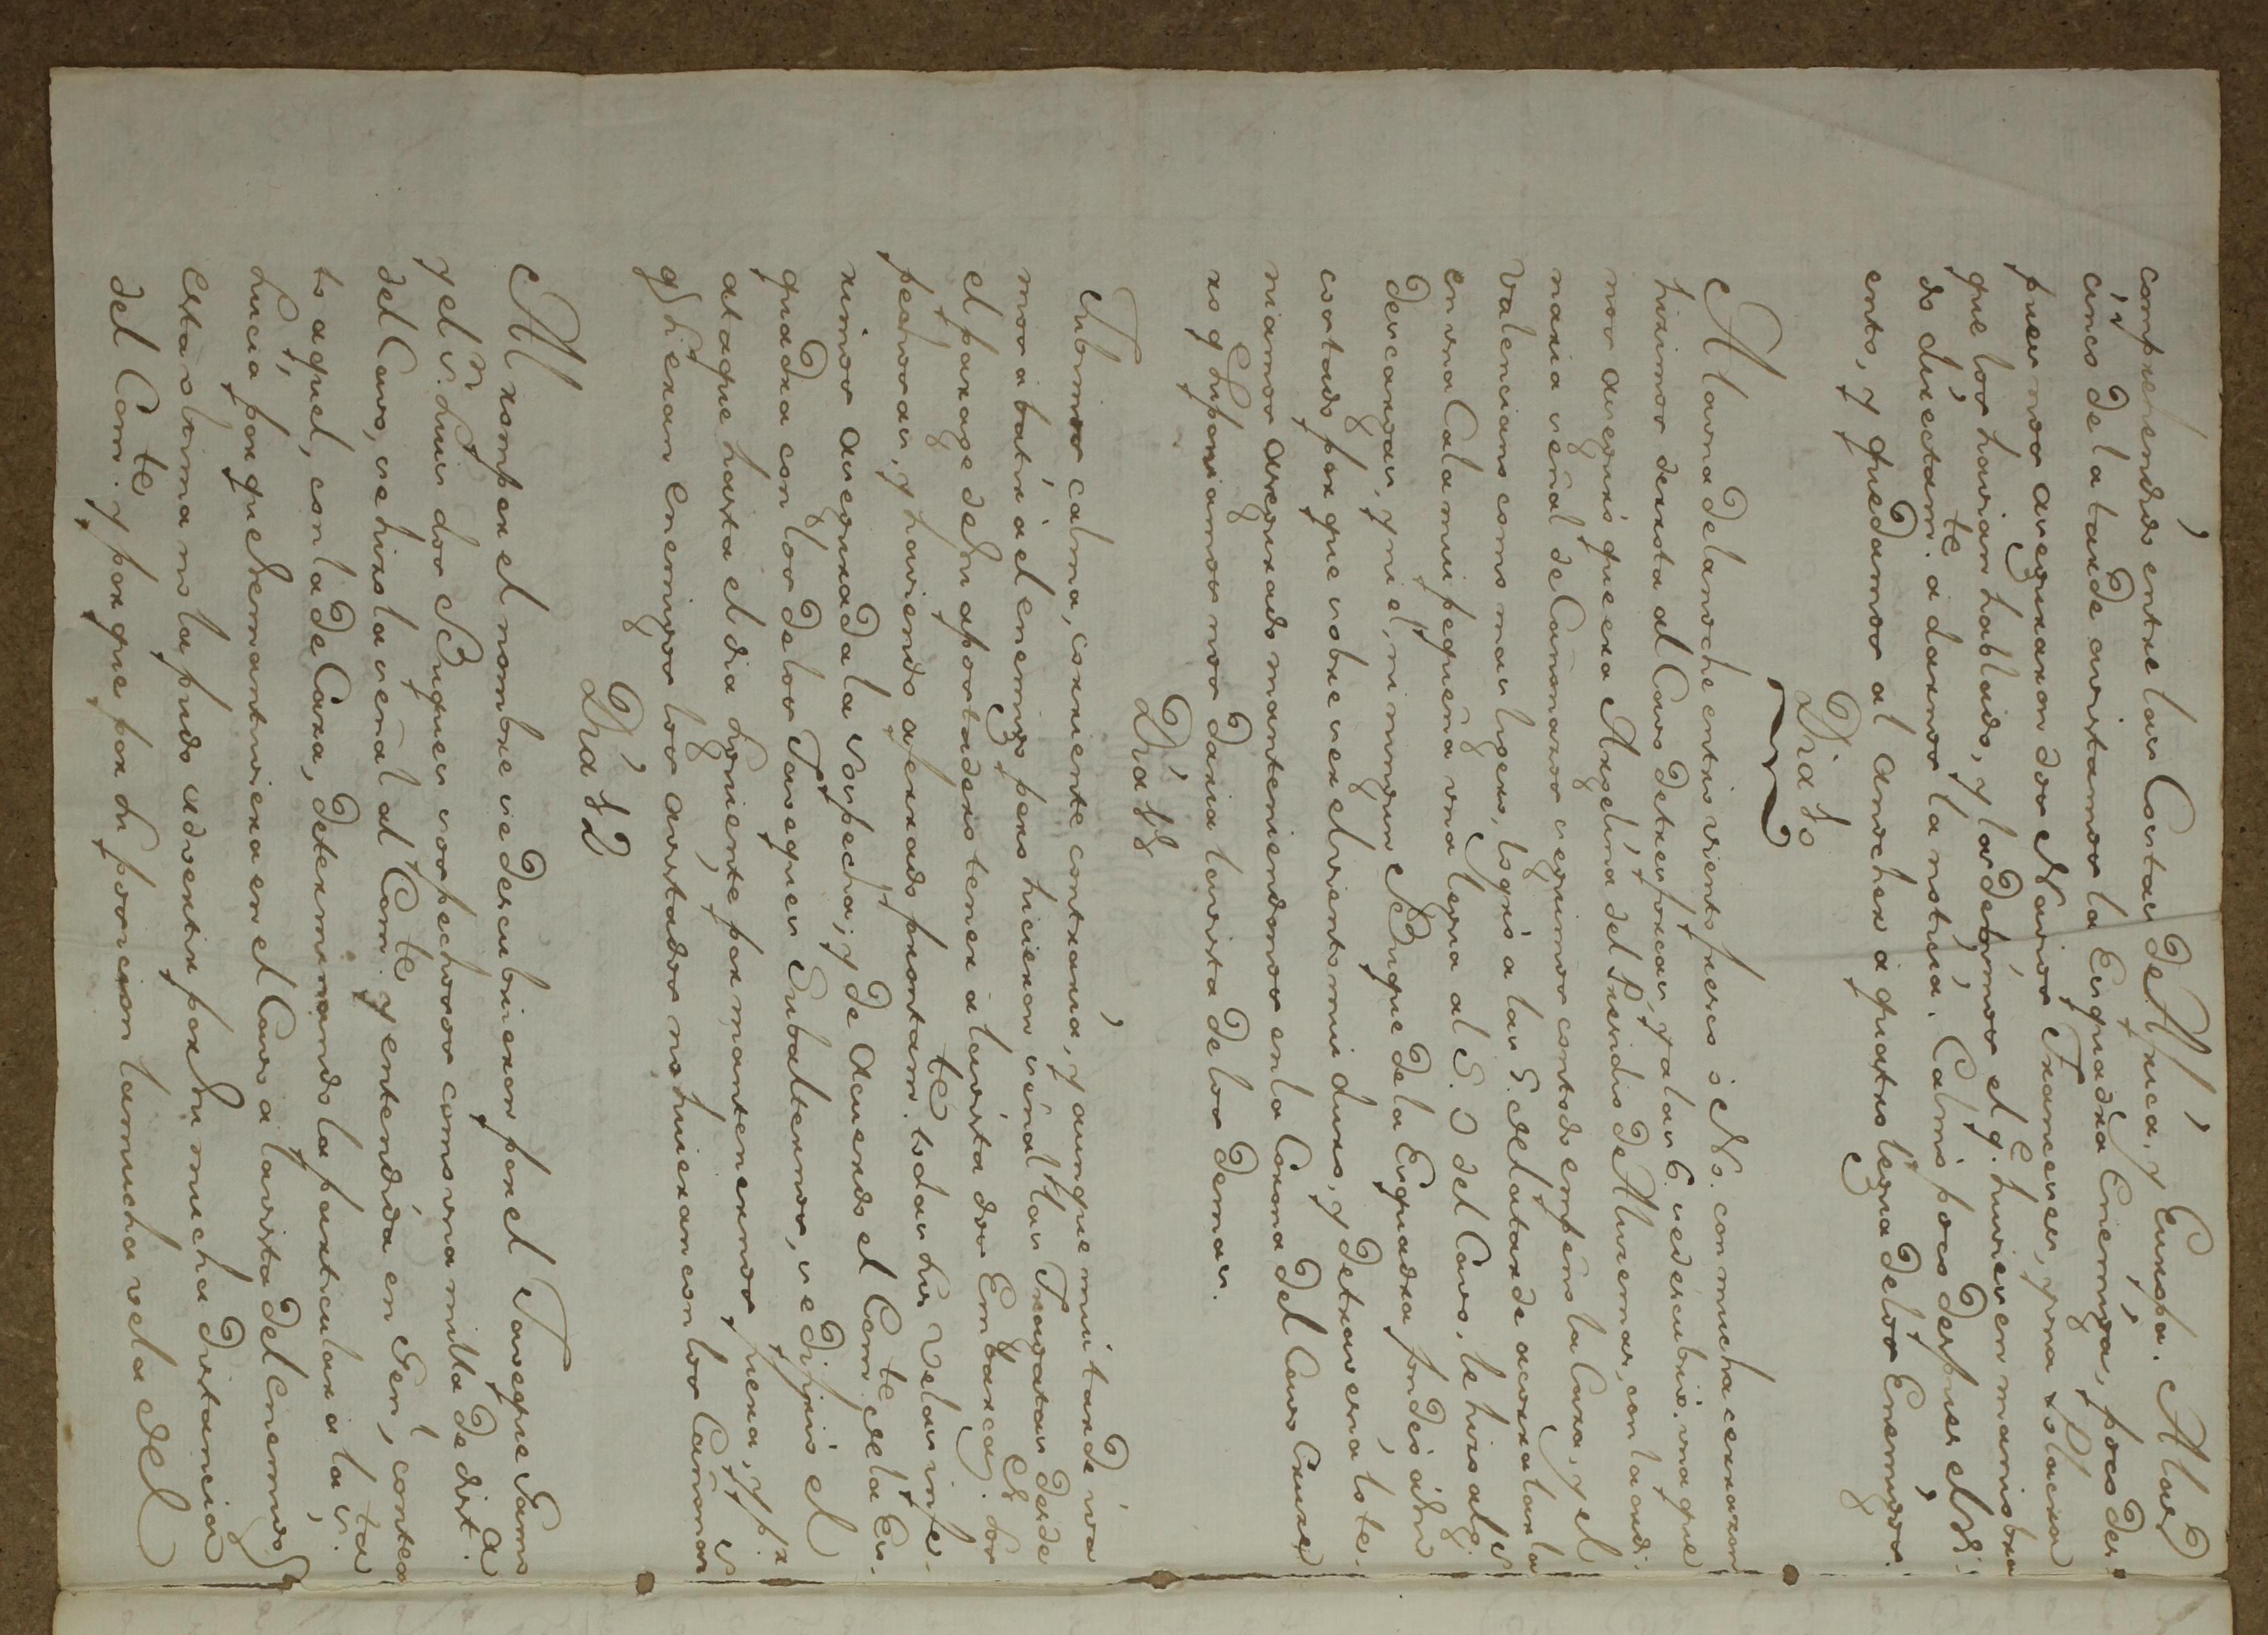 comprehendido entre las Costas de Africa, y Europa. Alas
cinco dela tarde avistamos la Esquadra Enemiga, poco des-
pues nos aseguraron dos Navios Franceses, y una Polacra
que los havian hablado, y lo devimos el q. huviesen maniobra
do directam.te a darnos la noticia. Calmó poco despues el vi-
ento, y quedamos al anochecer a quatro leguas delos Enemigos.
Dia 10
Alauna dela noche entró viento fresco s No. con mucha cerrazon
hicimos derrota al Cavo de tres forcas, y alas 6. se descubrió. una que
nos aseguró que era Argelina del Presidio de Alusemas, con la ordi-
naria señal de Cañonazos seguimos contodo empeño la Caza, y el
Valenciano como mas ligero, logró a las 5. dela tarde acorralarla
en una Cala mui pequeña una legua al S. O del Cavo. le hizo alg.s
descargas, y ni el, ni ningun Buque dela Esquadra pondió á su
costado por que sobre ser el viento mui duro, y de travesia lo te-
niamos asegurado manteniendonos en la Corona del Cavo Cruze
ro q Suponiamos nos daria la vista de los demas.
Dia 11
Tubimos calma, corriente contraria, y aunque mui tarde iva
mos a batir al enemigo pero hicieron señal las Fragatas desde
el parage de su apostadero tener a la vista dos Embarcag.s sos
pechosas, y haviendo aferrado prontam.te todas sus Velas infe-
rimos asegurada la sospecha, y de acuerdo el Com.te dela Es-
quadra con los delos Javeques Subalternos, se difirió el
ataque hasta el dia siguiente por mantenernos fuera, y p.r
q si eran enemigos los avistados no huieran con los Cañonaz
Dia 12
Al romper el nombre se descubrieron por el Javeque Gamo
y el S.n Luis dos Buques sospechosos como una milla de dist.a
del Cavo, se hizo la señal al Com.te y entendida en Gen.l, contes
to aquel, con la de Caza, determinando la particular a la S.ta
Lucia para que se mantuviera en el Cavo a la vista del enemigo
esta ultima no la pudo advertir por su mucha distancia
del Com.te y por que por su posicion la mucha vela del